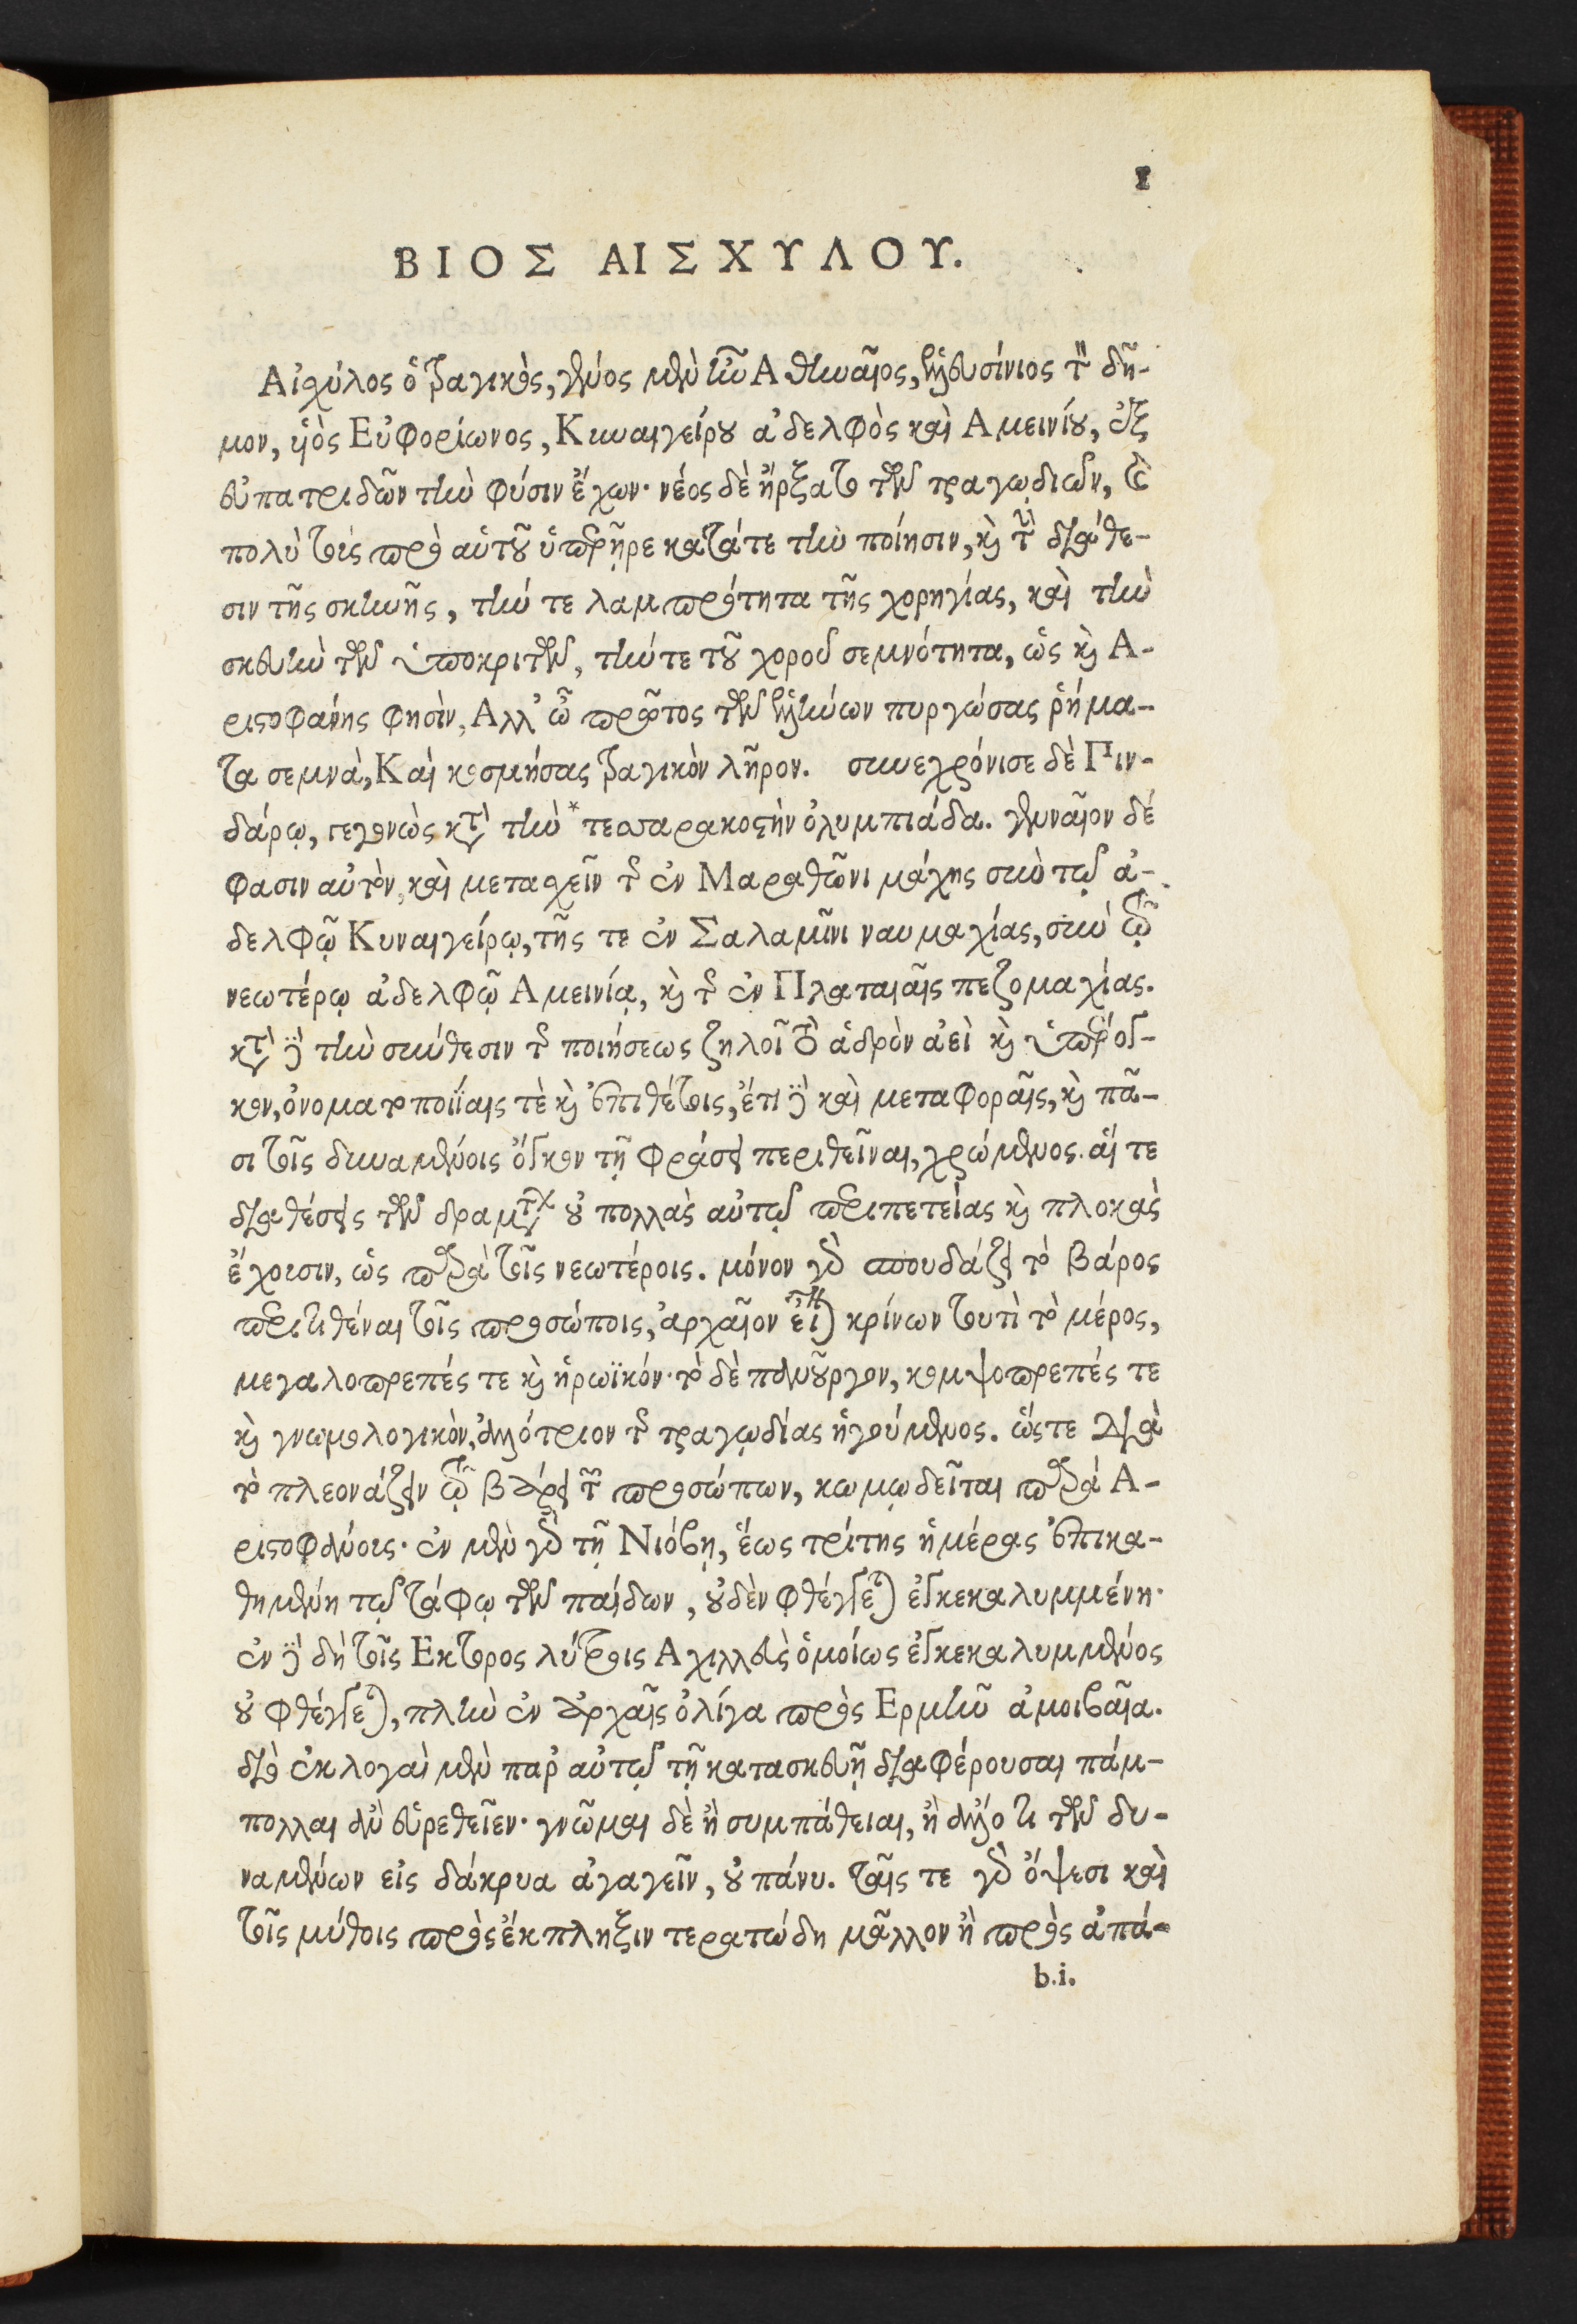 1
ΒΙΟΣ ΑΙΣΧΥΛΟΥ.
Αἰσχύλος ὁ τραγικὸς, γένος μὲν ἦν Ἀθηναῖος, ἐλευσίνιος τὸν δῆ-
μον, ὑὸς Εὐφορίωνος, Κυναιγείρου ἀδελφὸς καὶ Αμεινίου, ἐξ
εὐπατριδῶν τὴν φύσιν ἔχων· νέος δὲ ἤρξατο τῶν τραγῳδιῶν, καὶ
πολὺ τοὺς πρὸ αὑτοῦ ὑπερῆρε κατά τε τὴν ποίησιν, καὶ τὴν διάθε-
σιν τῆς σκηνῆς, τήν τε λαμπρότητα τῆς χορηγίας, καὶ τὴν
σκευὴν τῶν ὑποκριτῶν, τήν τε τοῦ χοροῦ σεμνότητα, ὡς καὶ Α-
ριστοφάνης φησὶν, Αλλ' ὦ πρῶτος τῶν ἑλλήνων πυργώσας ῥήμα-
τα σεμνὰ, Καὶ κοσμήσας τραγικὸν λῆρον. συνεχρόνισε δὲ Πιν-
δάρῳ, γεγονὼς κατὰ τὴν *τεσσαρακοστὴν ὀλυμπιάδα. γενναῖον δέ
φασιν αὐτὸν, καὶ μετασχεῖν τῆς ἐν Μαραθῶνι μάχης σὺν τῷ ἀ-
δελφῷ Κυναιγείρῳ, τῆς τε ἐν Σαλαμῖνι ναυμαχίας, σὺν τῷ
νεωτέρῳ ἀδελφῷ Αμεινίᾳ, καὶ τῆς ἐν Πλαταιαῖς πεζομαχίας.
κατὰ δὲ τὴν σύνθεσιν τῆς ποιήσεως ζηλοῖ τὸ ἁδρὸν ἀεὶ καὶ ὑπέρογ-
κον, ὀνοματοποιΐαις τὲ καὶ ἐπιθέτοις, ἔτι δὲ καὶ μεταφοραῖς, καὶ πᾶ-
σι τοῖς δυναμένοις ὄγκον τῇ φράσει περιθεῖναι, χρώμενος. αἵ τε
διαθέσεις τῶν δραμάτων οὐ πολλὰς αὐτῷ περιπετείας καὶ πλοκὰς
ἔχουσιν, ὡς παρὰ τοῖς νεωτέροις. μόνον γὰρ σπουδάζει τὸ βάρος
περιτιθέναι τοῖς προσώποις, ἀρχαῖον εἶναι κρίνων τουτὶ τὸ μέρος,
μεγαλοπρεπές τε καὶ ἡρωϊκόν· τὸ δὲ πανοῦργον, κομψοπρεπές τε
καὶ γνωμολογικὸν, ἀλλότριον τῆς τραγῳδίας ἡγούμενος. ὥστε διὰ
τὸ πλεονάζειν τῷ βάρει τῶν προσώπων, κωμῳδεῖται παρά Α-
ριστοφάνους· ἐν μὲν γὰρ τῇ Νιόβῃ, ἕως τρίτης ἡμέρας ἐπικα-
θημένη τῷ τάφῳ τῶν παίδων, οὐδὲν φθέγγεται ἐγκεκαλυμμένη·
ἐν δὲ δὴ τοῖς Εκτορος λύτροις Αχιλλεὺς ὁμοίως ἐγκεκαλυμμένος
οὐ φθέγγεται, πλὴν ἐν ἀρχαῖς ὀλίγα πρὸς Ερμῆν ἀμοιβαῖα.
διὸ ἐκλογαὶ μὲν παρ' αὐτῷ τῇ κατασκευῇ διαφέρουσαι πάμ-
πολλαι ἂν εὑρεθεῖεν· γνῶμαι δὲ ἢ συμπάθειαι, ἢ ἄλλό τι τῶν δυ-
ναμένων εἰς δάκρυα ἀγαγεῖν, οὐ πάνυ. ταῖς τε γὰρ ὄψεσι καὶ
τοῖς μύθοις πρὸς ἔκπληξιν τερατώδη μᾶλλον ἢ πρὸς ἀπά-
b.i.